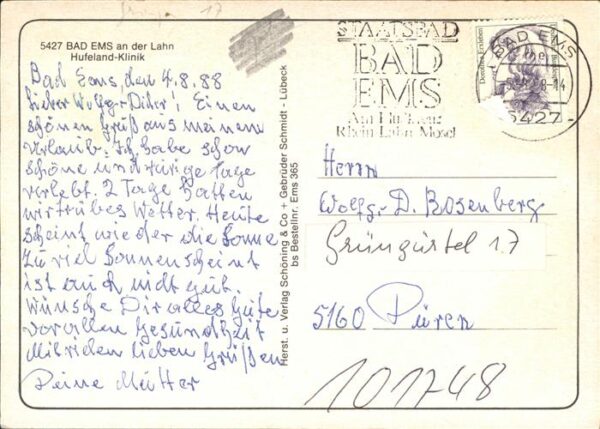 Grüng. 17
5427 BAD EMS an der Lahn
Hufeland-Klinik
Bad Ems, den 4.8.88
Lieber Wolfg-Dieter! Einen
schönen Gruß aus meinem
Urlaub. Ich habe schon
schöne und ruhige Tage
verlebt. 2 Tage hatten
wir trübes Wetter. Heute
scheint wieder die Sonne
Zu viel Sonnenschein
ist auch nicht gut.
Wünsche Dir alles Gute
vor allem Gesundheit
Mit vielen lieben Grüßen
Deine Mutter
Herst. u. Verlag Schöning & Co + Gebrüder Schmidt - Lübeck
bs Bestellnr. Ems 365
STAATSBAD
BAD
EMS
Rhein Lahn Mosel
BAD EMS
5427
Herrn
Wolfg.-D. Rosenberg
Grüngürtel 17
5160 Düren
101748